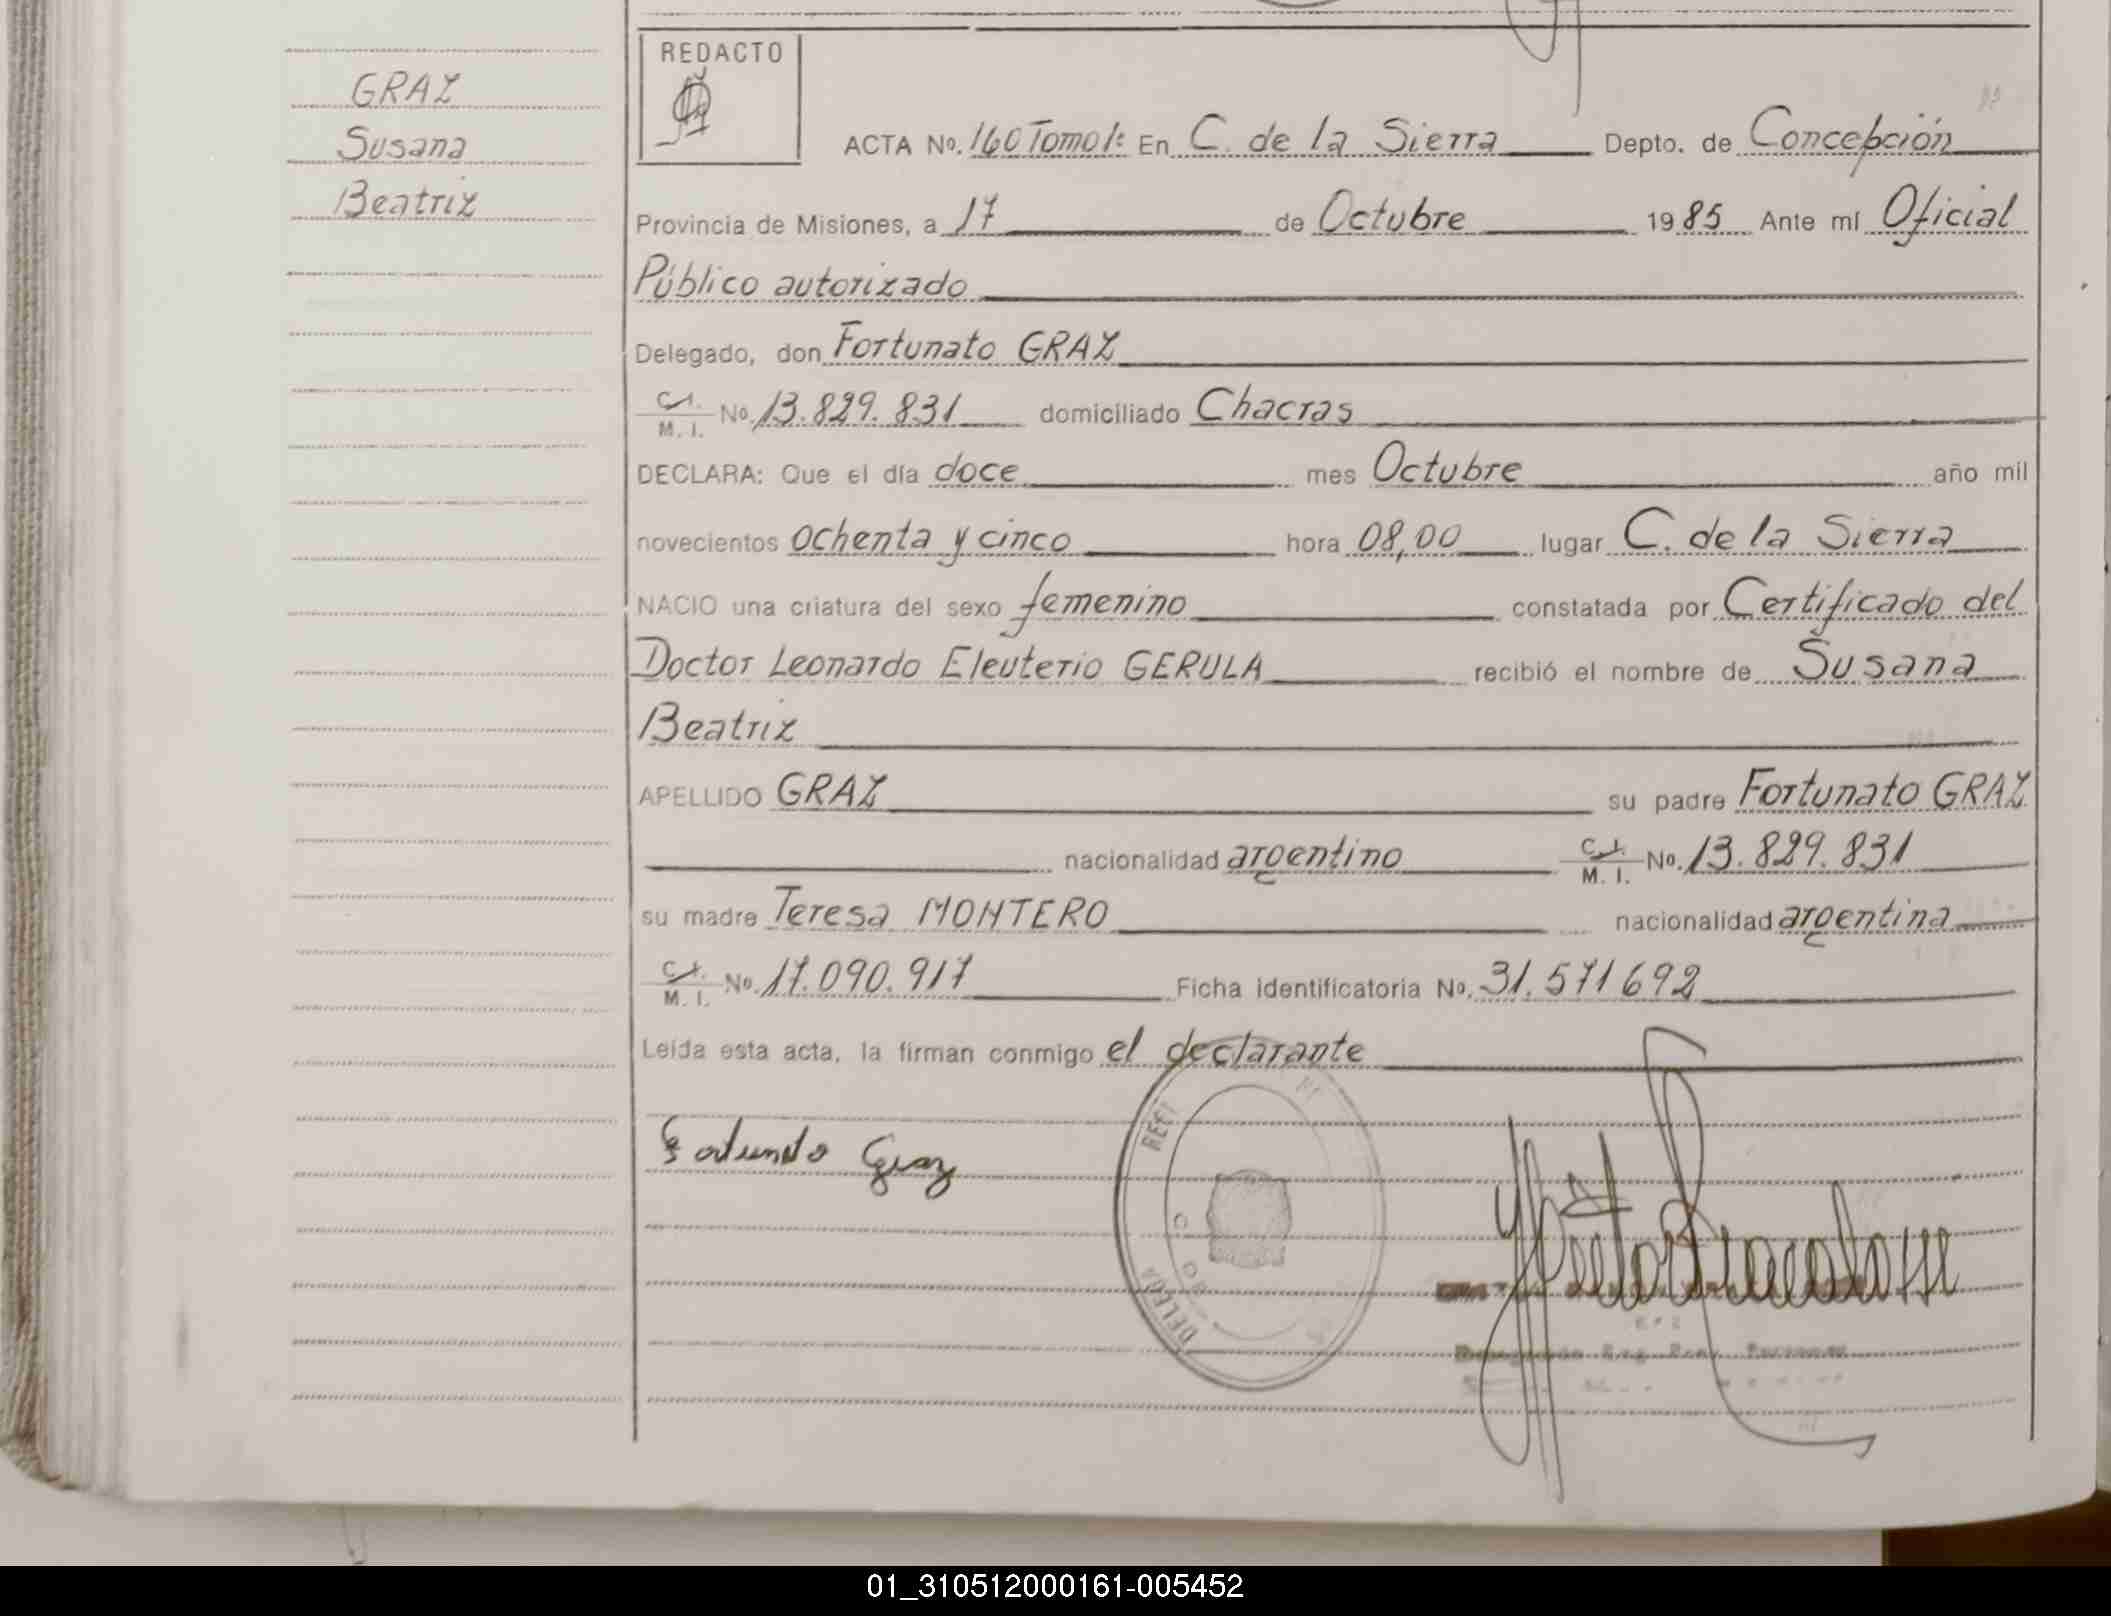 REDACTO
GRAZ
Susana
Beatriz
ACTA No. 160 Tomo 1: En C. de la Sierra Depto. de Concepción
Provincia de Misiones, a 17 de Octubre 1985 Ante mí Oficial
Público autorizado
Delegado, don Fortunato GRAZ
C.I. M. I. No. 13.829.831 domiciliado Chacras
DECLARA: Que el día doce mes Octubre año mil
novecientos ochenta y cinco hora 08,00 lugar C. de la Sierra
NACIO una criatura del sexo femenino constatada por Certificado del
Doctor Leonardo Eleuterio GERULA recibió el nombre de Susana
Beatriz
APELLIDO GRAZ su padre Fortunato GRAZ
nacionalidad argentino C.I. M. I. No. 13.829.831
su madre Teresa MONTERO nacionalidad argentina
C.I. M. I. No. 17.090.917 Ficha identificatoria No. 31.571692
Leída esta acta, la firman conmigo el declarante
Fortunato Graz
01_310512000161-005452